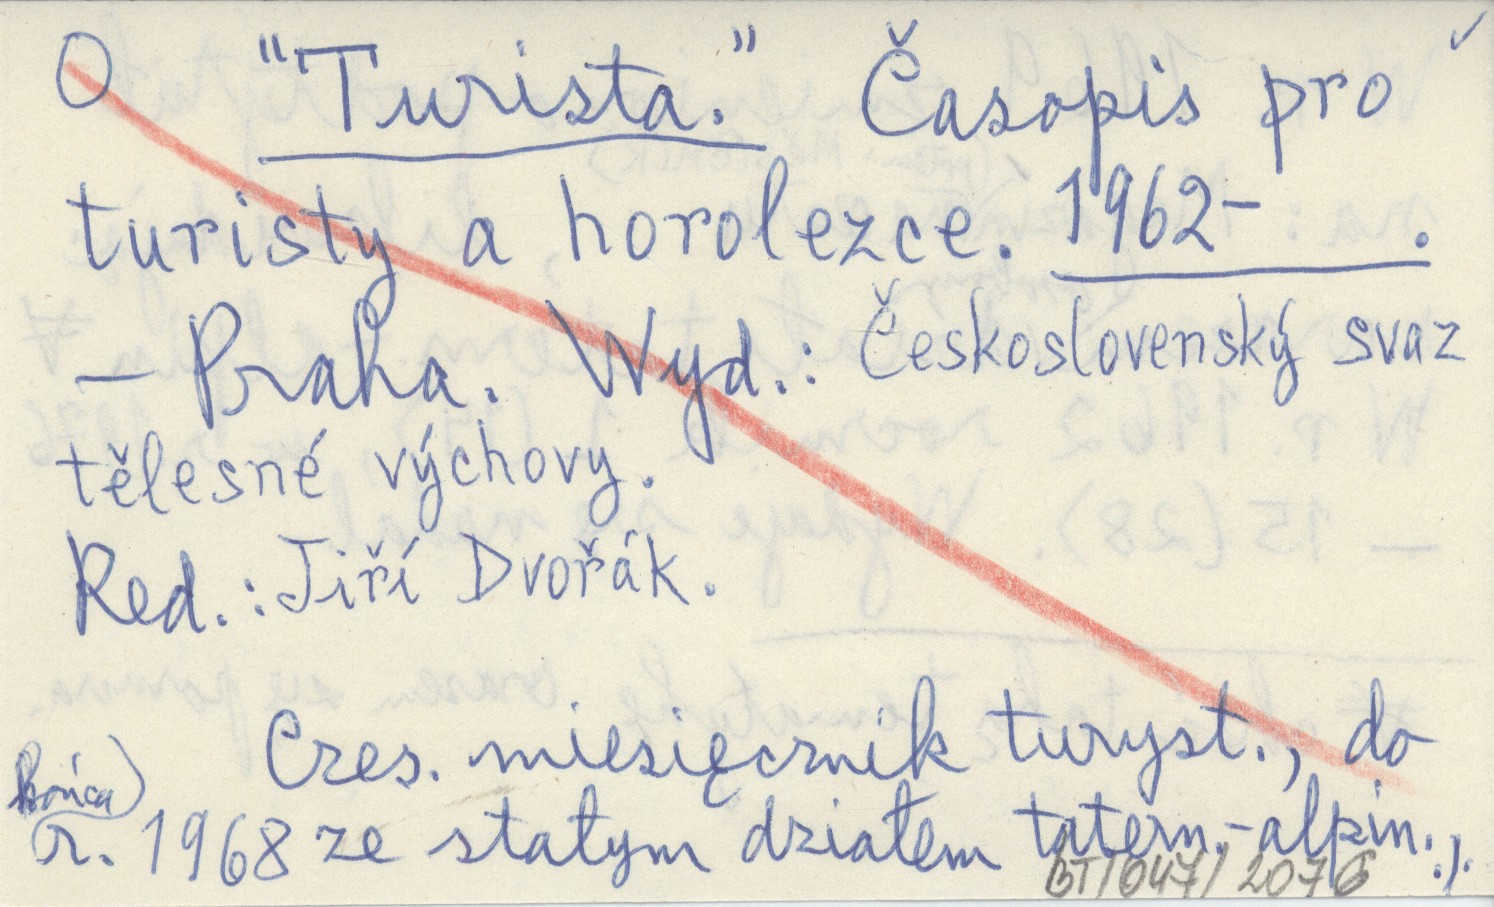 O "Turista." Časopis pro
turisty a horolezce. 1962- .
— Praha. Wyd.: Československý svaz
tělesné výchovy.
Red.: Jiří Dvořák.
Czes. miesięcznik turyst., do
końca
r. 1968 ze stałym działem tatern.-alpin.;).
BT/047/2076